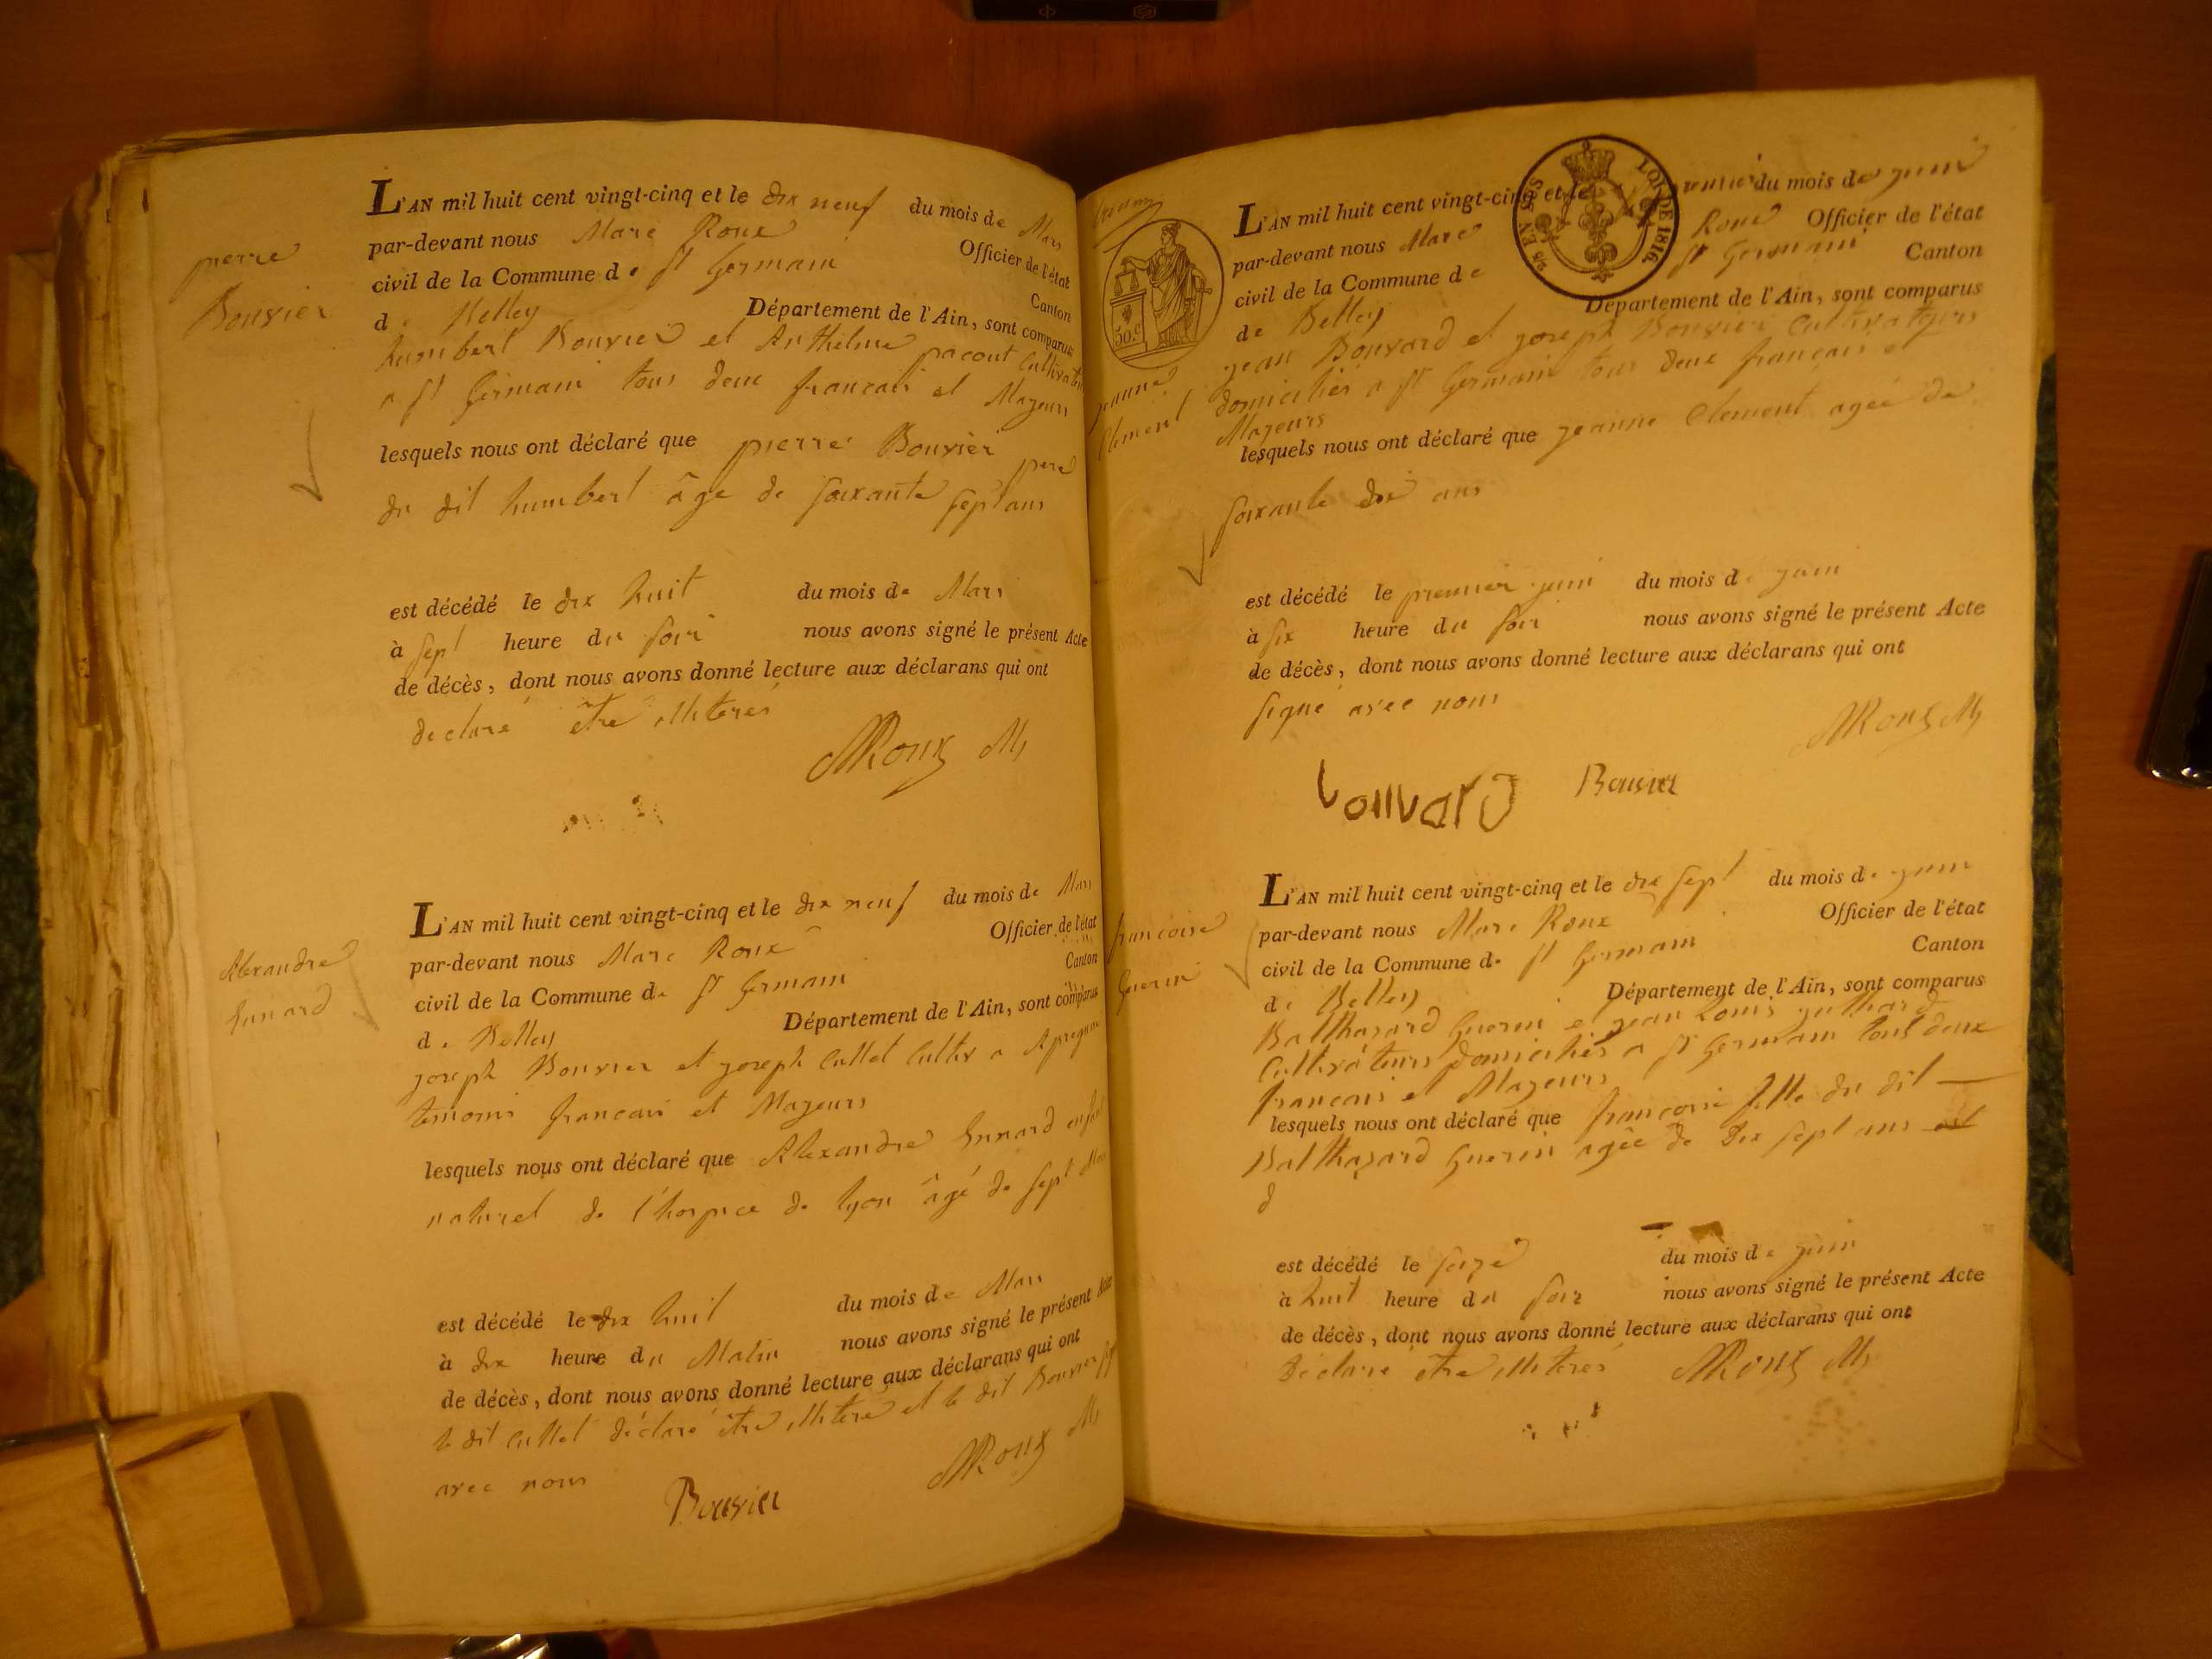 pierre
Bouvier
L'AN mil huit cent vingt-cinq et le dix neuf du mois de Mars
par-devant nous Marc Roux Officier de l'état
civil de la Commune de St Germain Canton
de Belley Département de l'Ain, sont comparus
humbert Bouvier et Anthelme pacout Cultivateurs
a St Germain tous deux francais et Majeurs
lesquels nous ont déclaré que pierre Bouvier pere
du dit humbert âge de soixante sept ans
est décédé le dix huit du mois de Mars
à sept heure du soir nous avons signé le présent Acte
de décès, dont nous avons donné lecture aux déclarans qui ont
declaré être illiterés
MRoux M
Alexandre
Ennard
L'AN mil huit cent vingt-cinq et le dix neuf du mois de Mars
par-devant nous Marc Roux Officier de l'état
civil de la Commune de St Germain Canton
de Belley Département de l'Ain, sont comparus
joseph Bouvier et joseph Cullet Cultiv a
temoins francais et Majeurs
lesquels nous ont déclaré que Alexandre Ennard enfant
naturel de l'hospice de lyon âgé de sept Mois
est décédé le dix huit du mois de Mars
à dix heure du Matin nous avons signé le présent Acte
de décès, dont nous avons donné lecture aux déclarans qui ont
le dit Cullet déclaré être illiteré et le dit Bouvier signé
avec nous
Bouvier MRoux M
LOI DE 1816
50.c
jeanne
Clement
L'AN mil huit cent vingt-cinq et le premier du mois de juin
par-devant nous Marc Roux Officier de l'état
civil de la Commune de St Germain Canton
de Belley Département de l'Ain, sont comparus
jean Bouvard et joseph Bouvier Cultivateurs
domiciliés a St Germain tous deux francais et
Majeurs
lesquels nous ont déclaré que jeanne Clement agée de
soixante dix ans
est décédé le premier juin du mois de juin
à six heure du soir nous avons signé le présent Acte
de décès, dont nous avons donné lecture aux déclarans qui ont
signé avec nous
MRoux M
bouvard Bouvier
francoise
Guerin
L'AN mil huit cent vingt-cinq et le dix sept du mois de juin
par-devant nous Marc Roux Officier de l'état
civil de la Commune de St Germain Canton
de Belley Département de l'Ain, sont comparus
Balthazard Guerin et jean Louis
Cultivateurs domiciliés a St Germain tous deux
francais et Majeurs
lesquels nous ont déclaré que francoise fille du dit
Balthazard Guerin agée de dix sept ans est
d
est décédé le seize du mois de juin
à huit heure du soir nous avons signé le présent Acte
de décès, dont nous avons donné lecture aux déclarans qui ont
déclaré être illiterés MRoux M